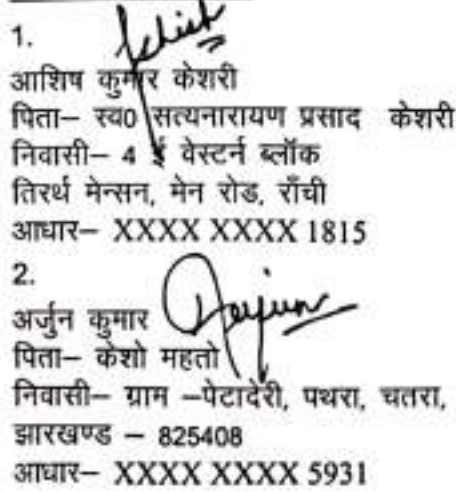 1.
Ashish
आशिष कुमार केशरी
पिता– स्व0 सत्यनारायण प्रसाद केशरी
निवासी– 4 ई वेस्टर्न ब्लॉक
तिरर्थ मेन्सन, मेन रोड, राँची
आधार– XXXX XXXX 1815
2.
अर्जुन कुमार Arjun
पिता– केशो महतो
निवासी– ग्राम –पेटादेरी, पथरा, चतरा,
झारखण्ड – 825408
आधार– XXXX XXXX 5931